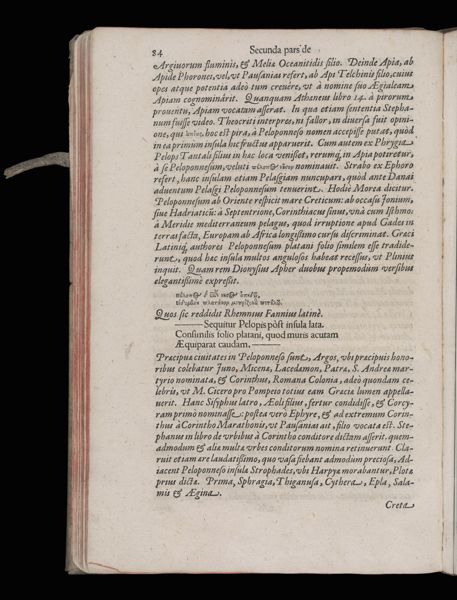 84 Secunda pars de
Argiuorum fluminis, & Meliæ Oceanitidis filio. Deinde Apia, ab
Apide Phorones, vel, vt Pausanias refert, ab Apt Telchinis filio, cuius
opes atque potentia adeò tum creuêre, vt à nomine suo Ægialeam
Apiam cognominârit. Quanquam Atheneus libro 14. à pirorum
prouentu, Apiam vocatam asserat. In qua etiam sententia Stepha-
num fuisse video. Theocriti interpres, ni fallor, in diuersa fuit opini-
one, qui hoc est pira, à Peloponneso nomen accepisse putat, quòd
in ea primùm insula hic fructus apparuerit. Cum autem ex Phrygia
Pelops Tantali filius in hac loca venisset, rerumq́, in Apia potiretur,
à se Peloponnesum, veluti nominauit. Strabo ex Ephoro
refert, hanc insulam etiam Pelasgiam nuncupari, quòd ante Danai
aduentum Pelasgi Peloponnesum tenuerint. Hodiè Morea dicitur.
Peloponnesum ab Oriente respicit mare Creticum: ab occasu Ionium,
siue Hadriaticū: à Septentrione, Corinthiacus sinus, vnà cum Isthmo:
à Meridie mediterraneum pelagus, quod irruptione apud Gades in
terras facta, Europam ab Africa longissimo cursu discriminat. Græci
Latiniq́, authores Peloponnesum platani folio similem esse tradide-
runt, quòd hac insula multos angulosos habeat recessus, vt Plinius
inquit. Quam rem Dionysius Apher duobus propemodùm versibus
elegantissimè expressit.
Quos sic reddidit Rhemnius Fannius latinè.
Sequitur Pelopis pòst insula lata.
Consimilis folio platani, quod muris acutam
Æquiparat caudam.
Præcipuæ ciuitates in Peloponneso sunt, Argos, vbi præcipuis hono-
ribus colebatur Iuno, Micena, Lacedæmon, Patra, S. Andreæ mar-
tyrio nominata, & Corinthus, Romana Colonia, adeò quondam ce-
lebris, vt M. Cicero pro Pompeio totius eam Græciæ lumen appella-
uerit. Hanc Sisyphus latro, Æoli filius, fertur condidisse, & Corcy-
ram primò nominasse: posteà verò Ephyre, & ad extremum Corin-
thus à Corintho Marathonis, vt Pausanias ait, filio vocata est. Ste-
phanus in libro de vrbibus à Corintho conditore dictam asserit. quem-
admodum & aliæ multæ vrbes conditorum nomina retinuerunt. Cla-
ruit etiam ære laudatissimo, quo vasa fiebant admodùm preciosa, Ad-
iacent Peloponneso insulæ Strophades, vbi Harpyæ morabantur, Plotæ
prius dictæ. Prima, Sphragia, Thiganusa, Cythera, Epla, Sala-
mis & Ægina.
Creta